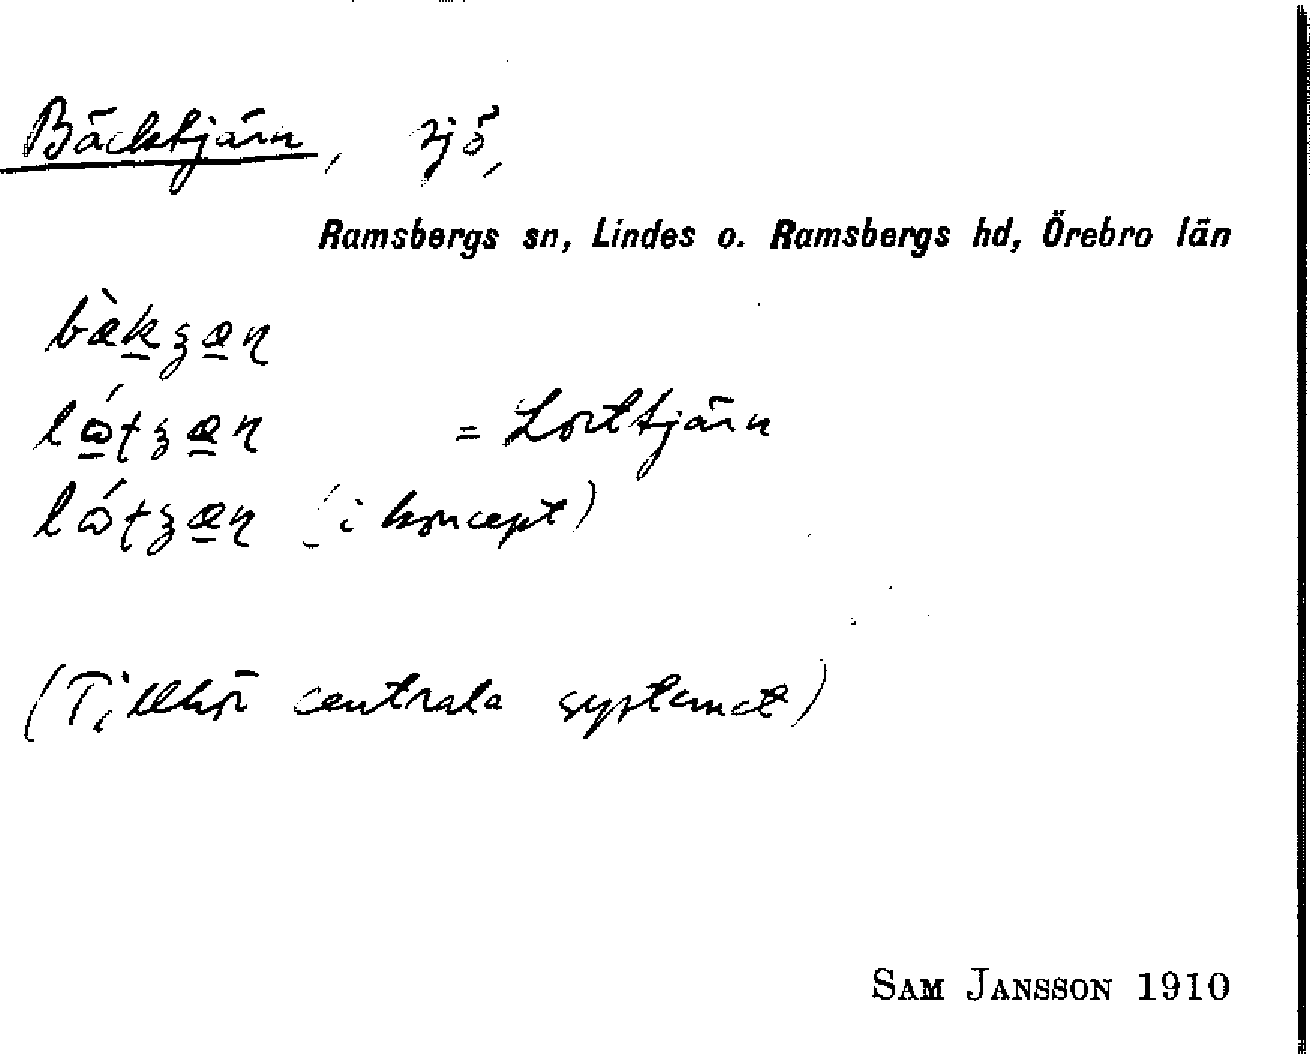 Bäcktjärn, sjö,
Ramsbergs sn, Lindes o. Ramsbergs hd, Örebro län
bæ̀k̲ʒæ̲ɳ
lɷ̲́ʈʒæ̲ɳ = Lorttjärn
lɷ́ʈʒæ̲ɳ (i koncept)
(Tillhör centrala systemet)
SAM JANSSON 1910